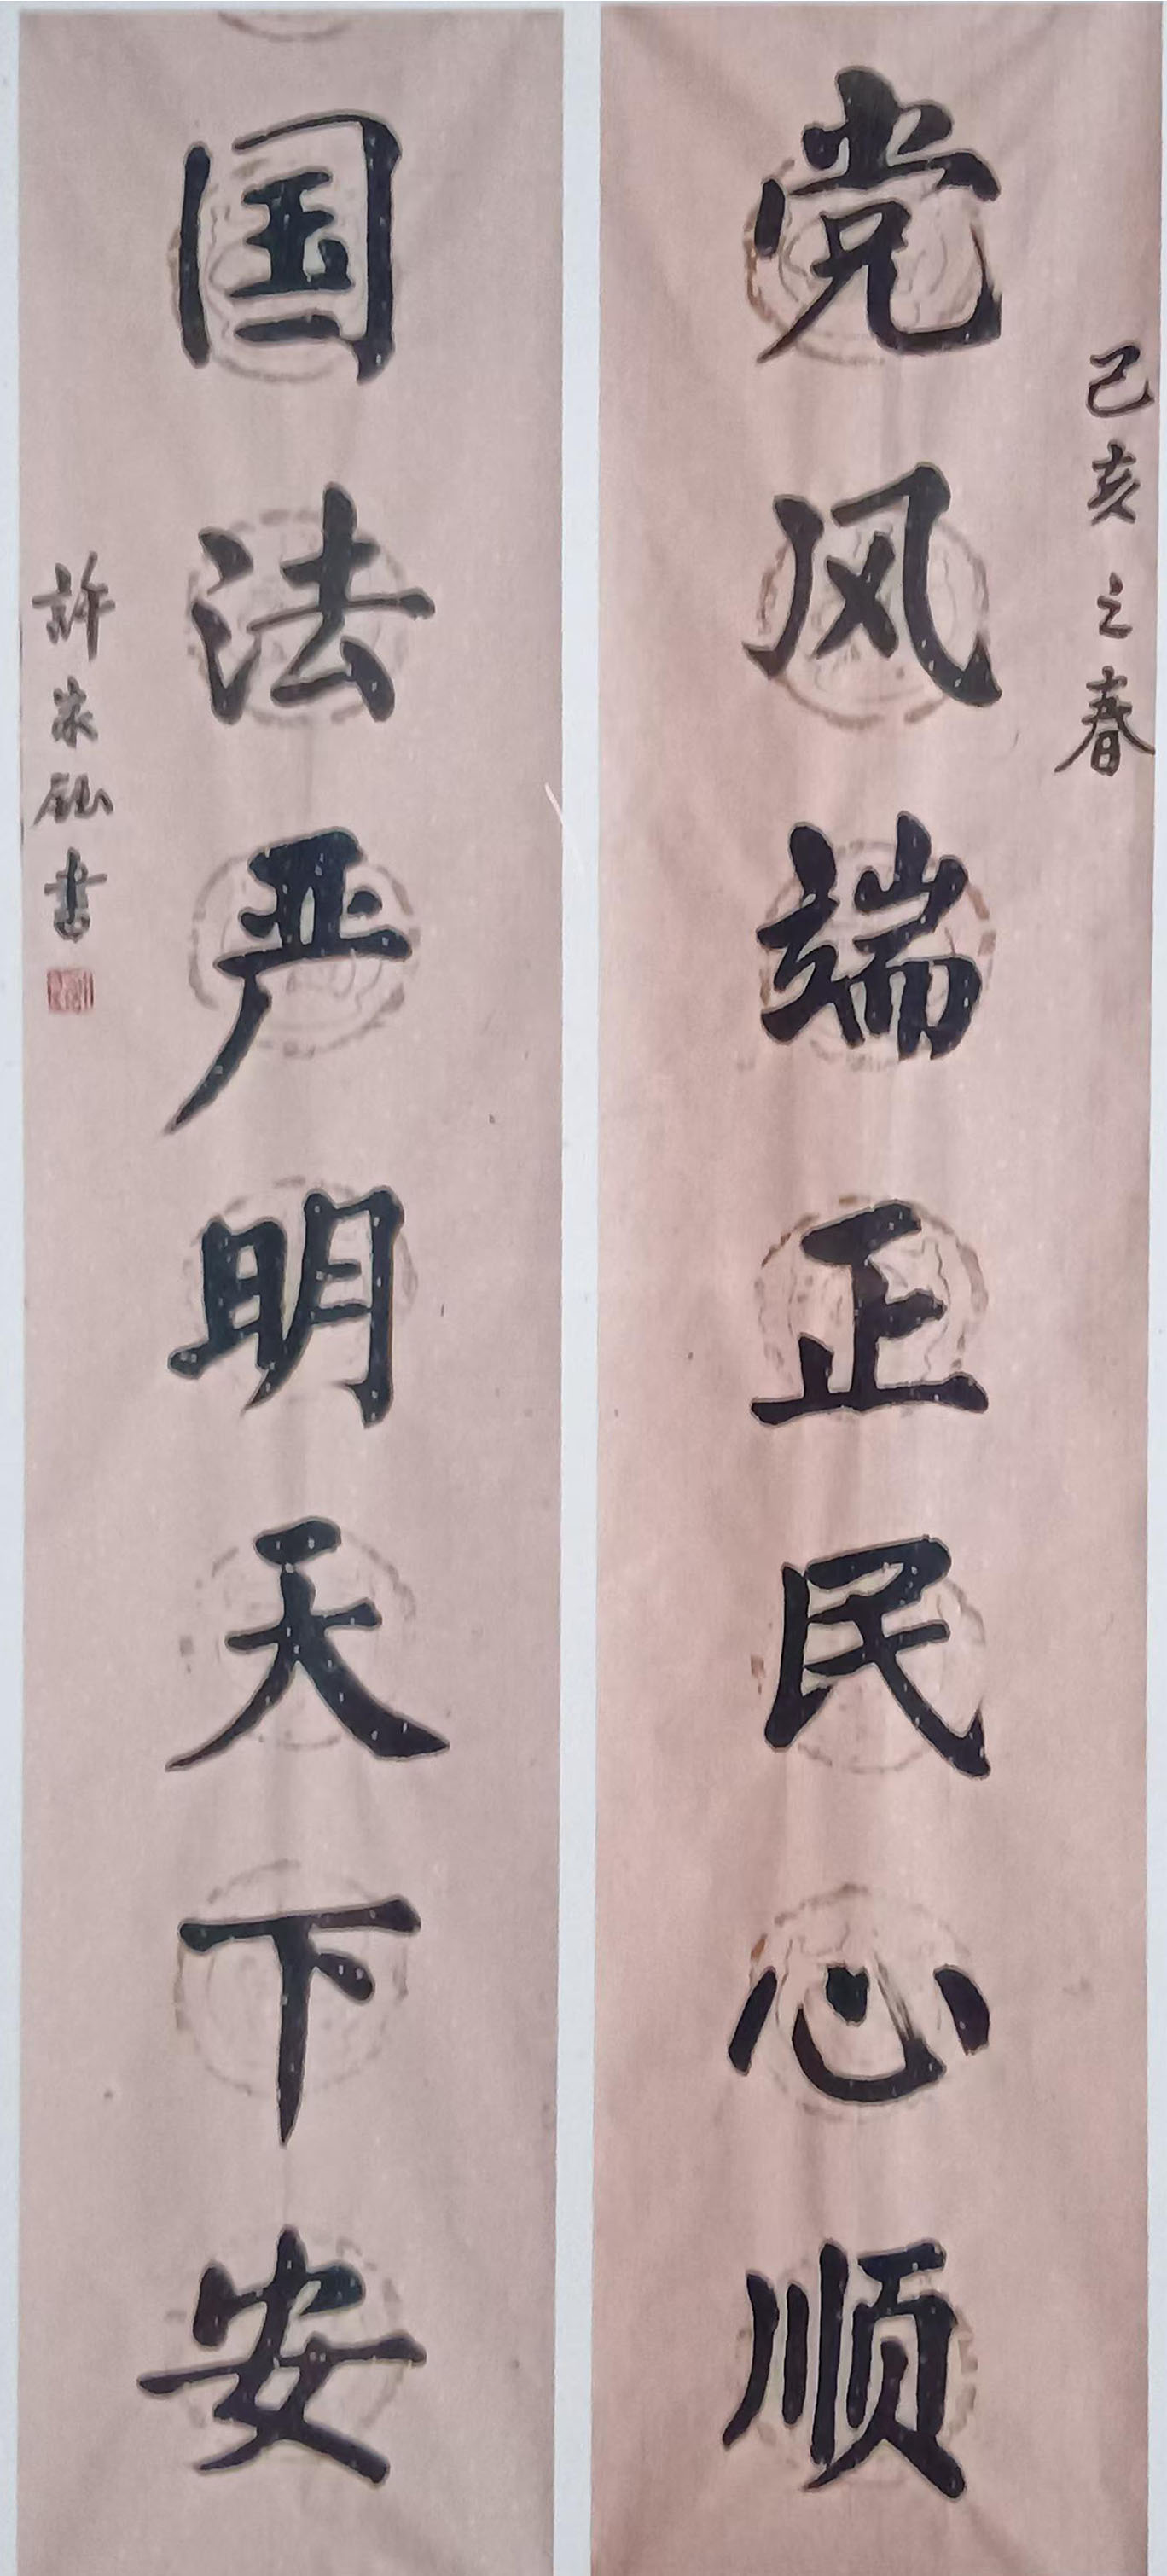 己亥之春
党风端正民心顺
国法严明天下安
許家書